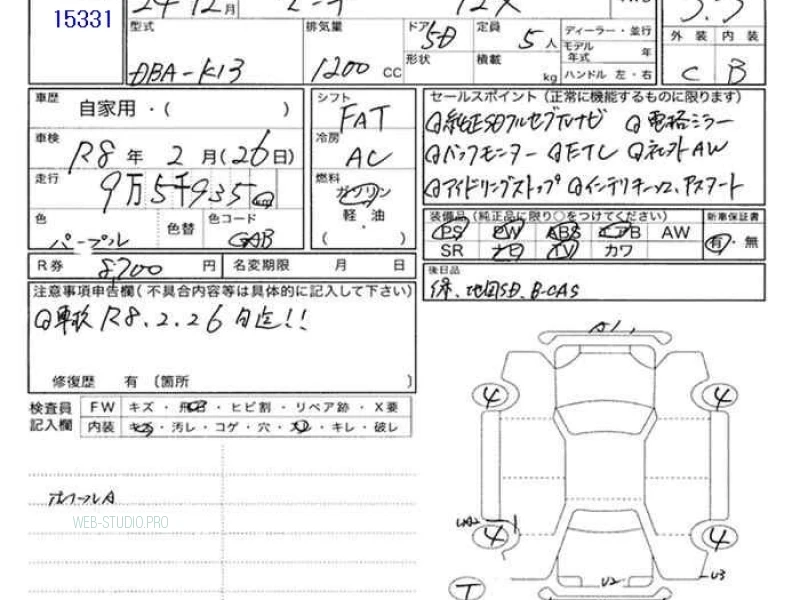 15331
24 12月
12X
3.5
型式
DBA-K13
排気量
1200 CC
ドア 5D
形状
定員 5人
積載 kg
ディーラー・並行
モデル年式 年
ハンドル 左・右
外装 内装
C B
車歴 自家用・( )
シフト FAT
車検 R8年 2月(26日)
冷房 AC
走行 9万5千935
燃料 ガソリン
軽・油
( )
色 パープル
色替
色コード GAB
R券 8,700円
名変期限 月 日
セールスポイント(正常に機能するものに限ります)
純正SDフルセグTVナビ 電格ミラー
バックモニター ETC 社外AW
アイドリングストップ インテリキー
装備品(純正品に限り○をつけてください)
新車保証書
PS PW ABS エアB AW
有・無
SR ナビ TV カワ
後日品
保、地図SD、B-CAS
注意事項申告欄(不具合内容等は具体的に記入して下さい)
車検 R8.2.26 迄!!
修復歴 有 〔箇所 〕
検査員記入欄
FW キズ・飛石・ヒビ割・リペア跡・X要
内装 キズ・汚レ・コゲ・穴・スレ・キレ・破レ
WEB-STUDIO.PRO
A1
4 4
4 4
U2 U3
T